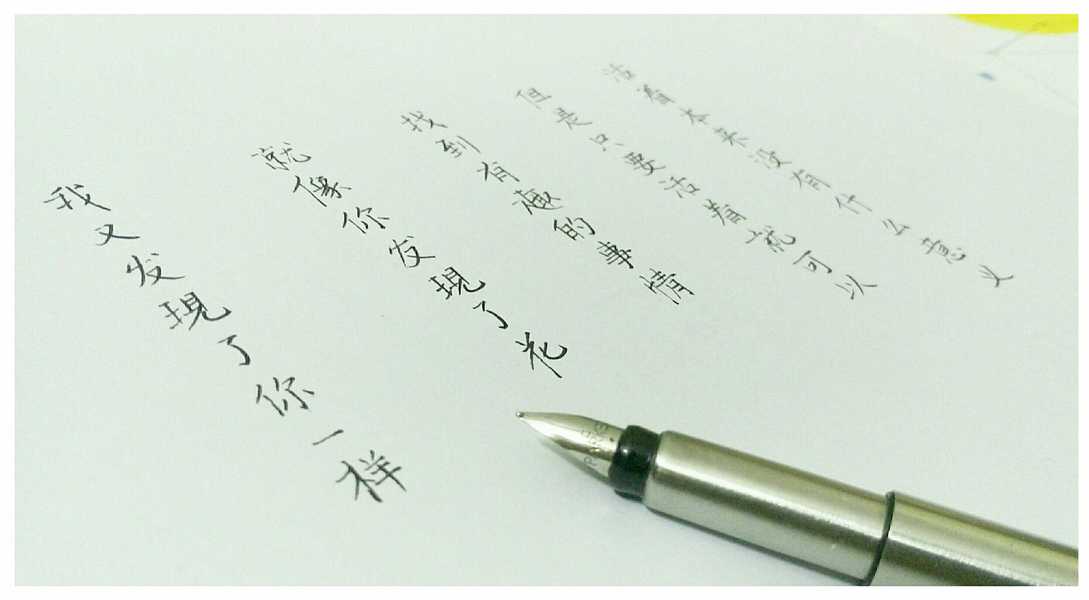 活着本来没有什么意义
但是只要活着就可以
找到有趣的事情
就像你发現了花
我又发現了你一样
PARIS